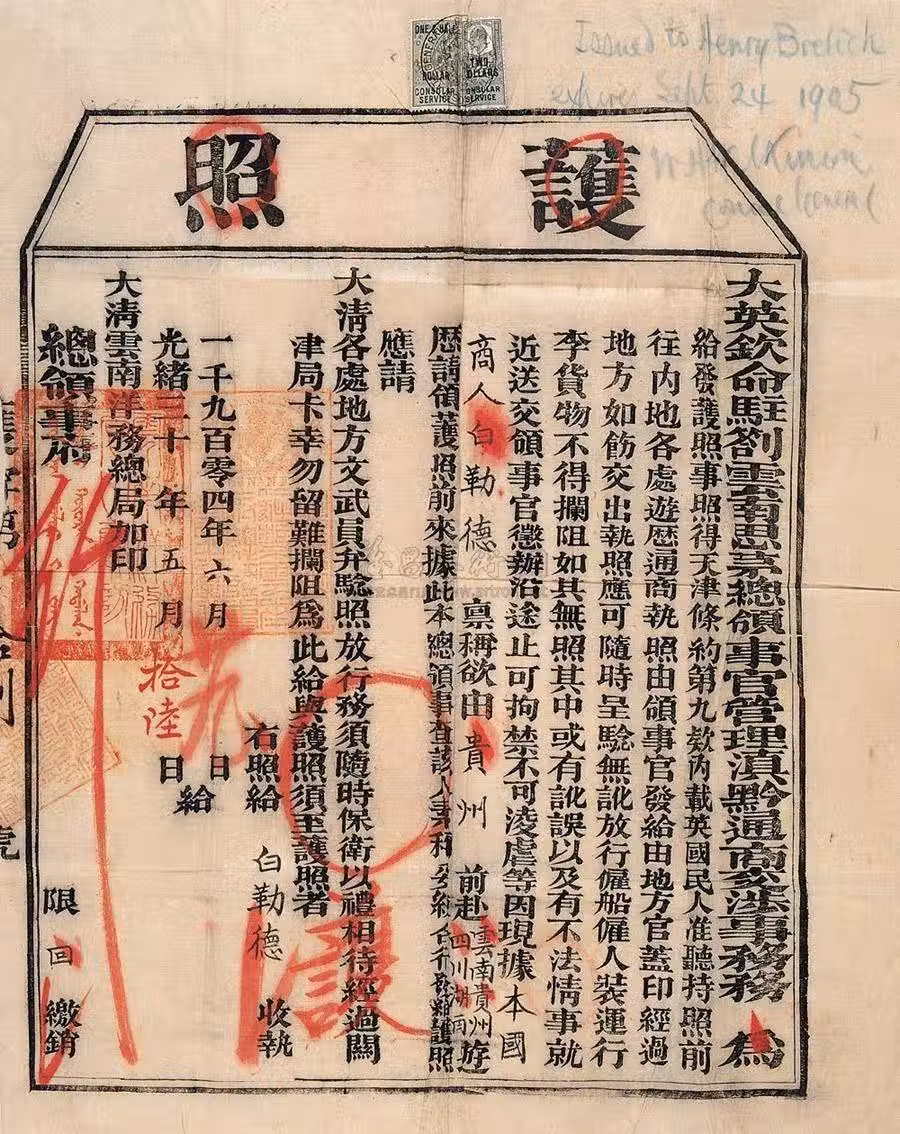 ONE & HALF
DOLLAR
CONSULAR
SERVICE
TWO
DOLLARS
CONSULAR
SERVICE
Issued to Henry Brelich
expires Sept 24 1905
護照
大英欽命駐劄雲南思茅總領事官管理滇黔通商交涉事務 爲
給發護照事照得天津條約第九欵內載英國民人准聽持照前
往內地各處遊歷通商執照由領事官發給由地方官蓋印經過
地方如飭交出執照應可隨時呈驗無訛放行僱船僱人裝運行
李貨物不得攔阻如其無照其中或有訛誤以及有不法情事就
近送交領事官懲辦沿途止可拘禁不可淩虐等因現據本國
商人白勒德 稟稱欲由貴州 前赴雲南貴州四川湖南遊
歷請領護照前來據此本總領事查該人
應請
大清各處地方文武員弁驗照放行務須隨時保衛以禮相待經過關
津局卡幸勿留難攔阻爲此給與護照須至護照者
右照給 白勒德 收執
一千九百零四年六月 日
光緒三十年五月拾陸日給
大清雲南洋務總局加印
總領事府
限回繳銷
第 號